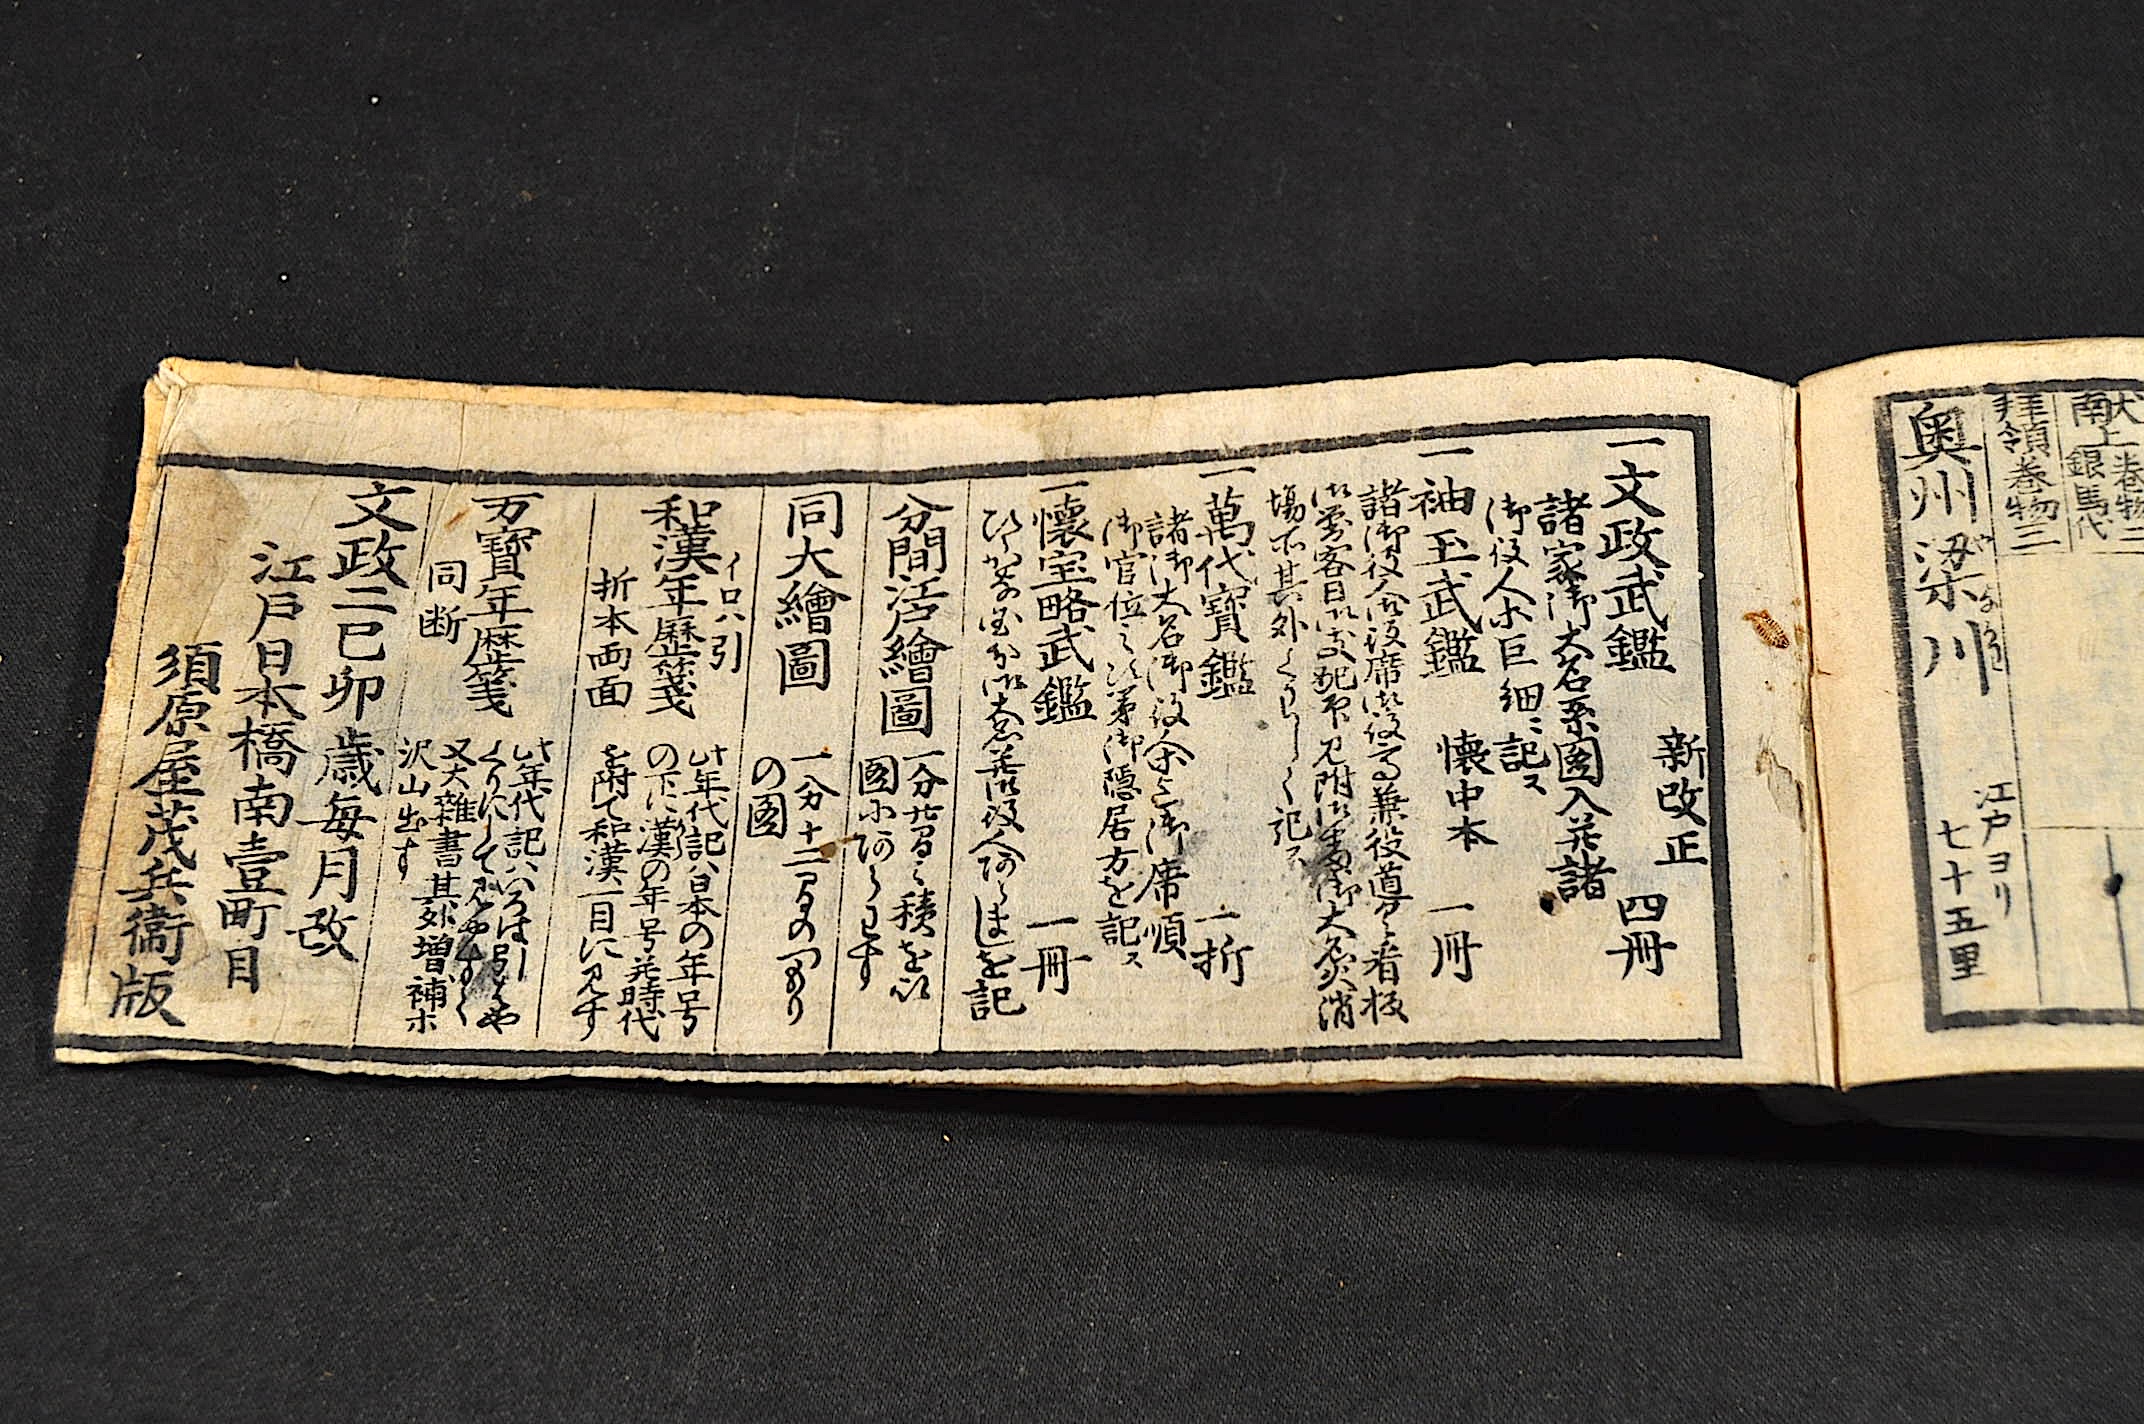 奥州梁川
やながは
江戸ヨリ
七十五里
拝領巻物三
献上巻物三
南上銀馬代
一文政武鑑 新改正 四冊
諸家御大名系図入并諸
御役人ホ巨細ニ記ス
一袖玉武鑑 懐中本 一冊
諸御役人御役席御役高兼役道具看板
場所其外くわしく記ス
一萬代寳鑑 一折
諸御大名御役人之御席順
御官位之次第御隠居方を記ス
一懐宝略武鑑 一冊
分間江戸繪圖
一分廿間之積を以
圖にあらわす
同大繪圖
一分十二間のつもり
の図
和漢年歴箋
イロハ引
折本両面
此年代記ハ日本の年号
の下に漢の年号并時代
を附て和漢一目に見す
万寳年歴箋
同断
此年代記ハいろは引はや
くりにして見やすく
又大雑書其外増補ホ
沢山出す
文政二己卯歳毎月改
江戸日本橋南壹町目
須原屋茂兵衛版